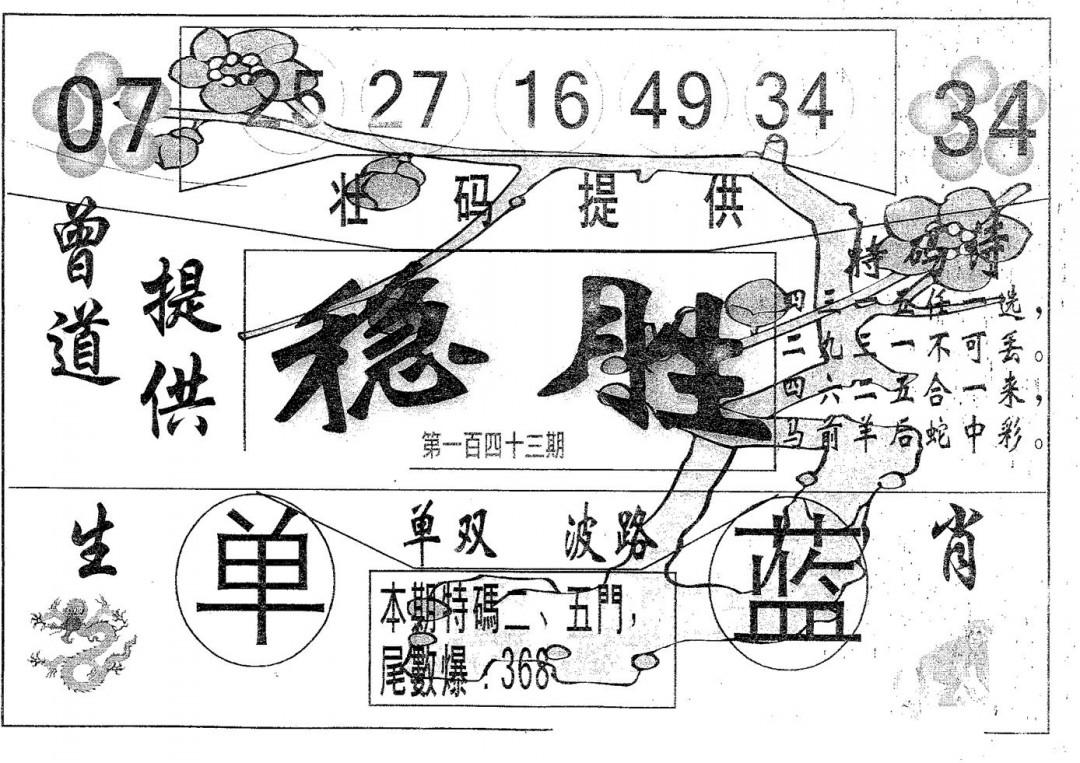 07 25 27 16 49 34 34
壮码提供
曾道
提供
稳胜
第一百四十三期
特码诗
四三一五任一选，
二九三一不可丢。
四六二五合一来，
马前羊后蛇中彩。
生 单 单双 波路 蓝 肖
本期特碼二、五門，
尾數爆：368